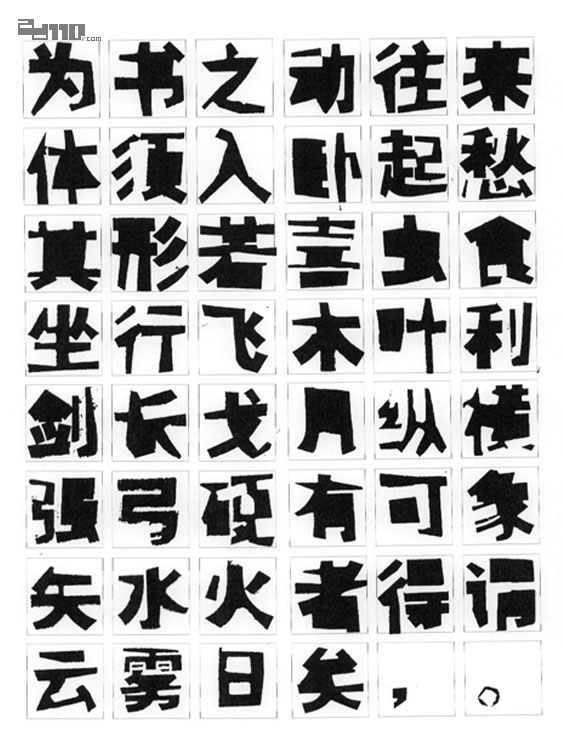 ad110.com
为书之动往来
体须入卧起愁
其形若喜虫食
坐行飞木叶利
剑长戈月纵横
强弓硬有可象
矢水火者得谓
云雾日矣，。